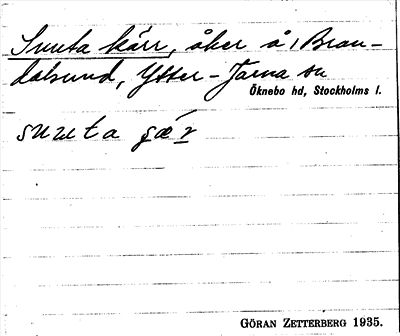 Sunta kärr, åker å, Bran-
dalsund, Ytter-Järna sn
Öknebo hd, Stockholms l.
sunta çær
GÖRAN ZETTERBERG 1935.